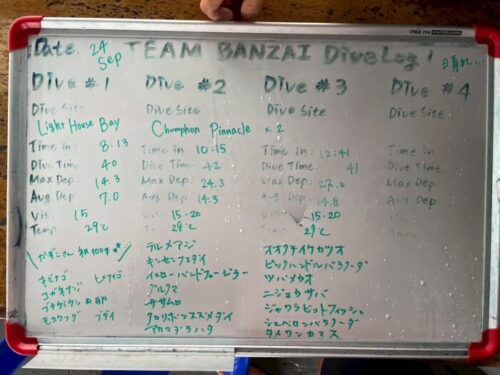 Date 24 Sep TEAM BANZAI Dive Log! 晴れ
Dive #1 Dive #2 Dive #3 Dive #4
Dive Site Dive Site Dive Site Dive Site
Light House Bay Chumphon Pinnacle x 2
Time in: 8:13 Time in: 10:15 Time in: 12:41 Time in:
Dive Time 40 Dive Time: 42 Dive Time: 41 Dive Time:
Max Dep: 14.3 Max Dep: 24.3 Max Dep: 27.0 Max Dep:
Avg Dep 7.0 Avg Dep: 14.3 Avg Dep: 14.8 Avg Dep:
Vis: 15 15-20 15-20
Temp 29℃ 29℃ 29℃
かずこさん 祝100本
テルメアジ オオクチイケカツオ
キンセンフエダイ ピックハンドルバラクーダ
イエローバンドフュージラー ツバメウオ
グルクマ ニジョウサバ
ササムロ ジャワラビットフィッシュ
クロリボンスズメダイ シェベロンバラクーダ
アカマダラハタ タイワンカマス